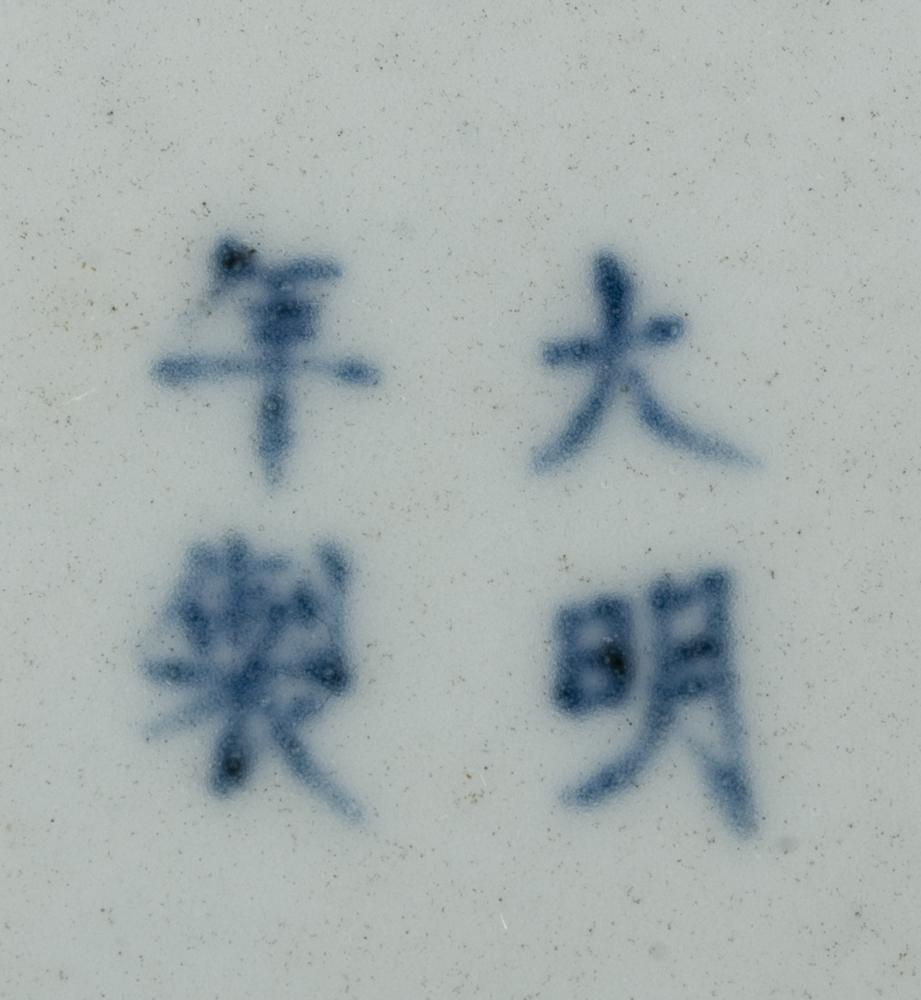 大明
年製